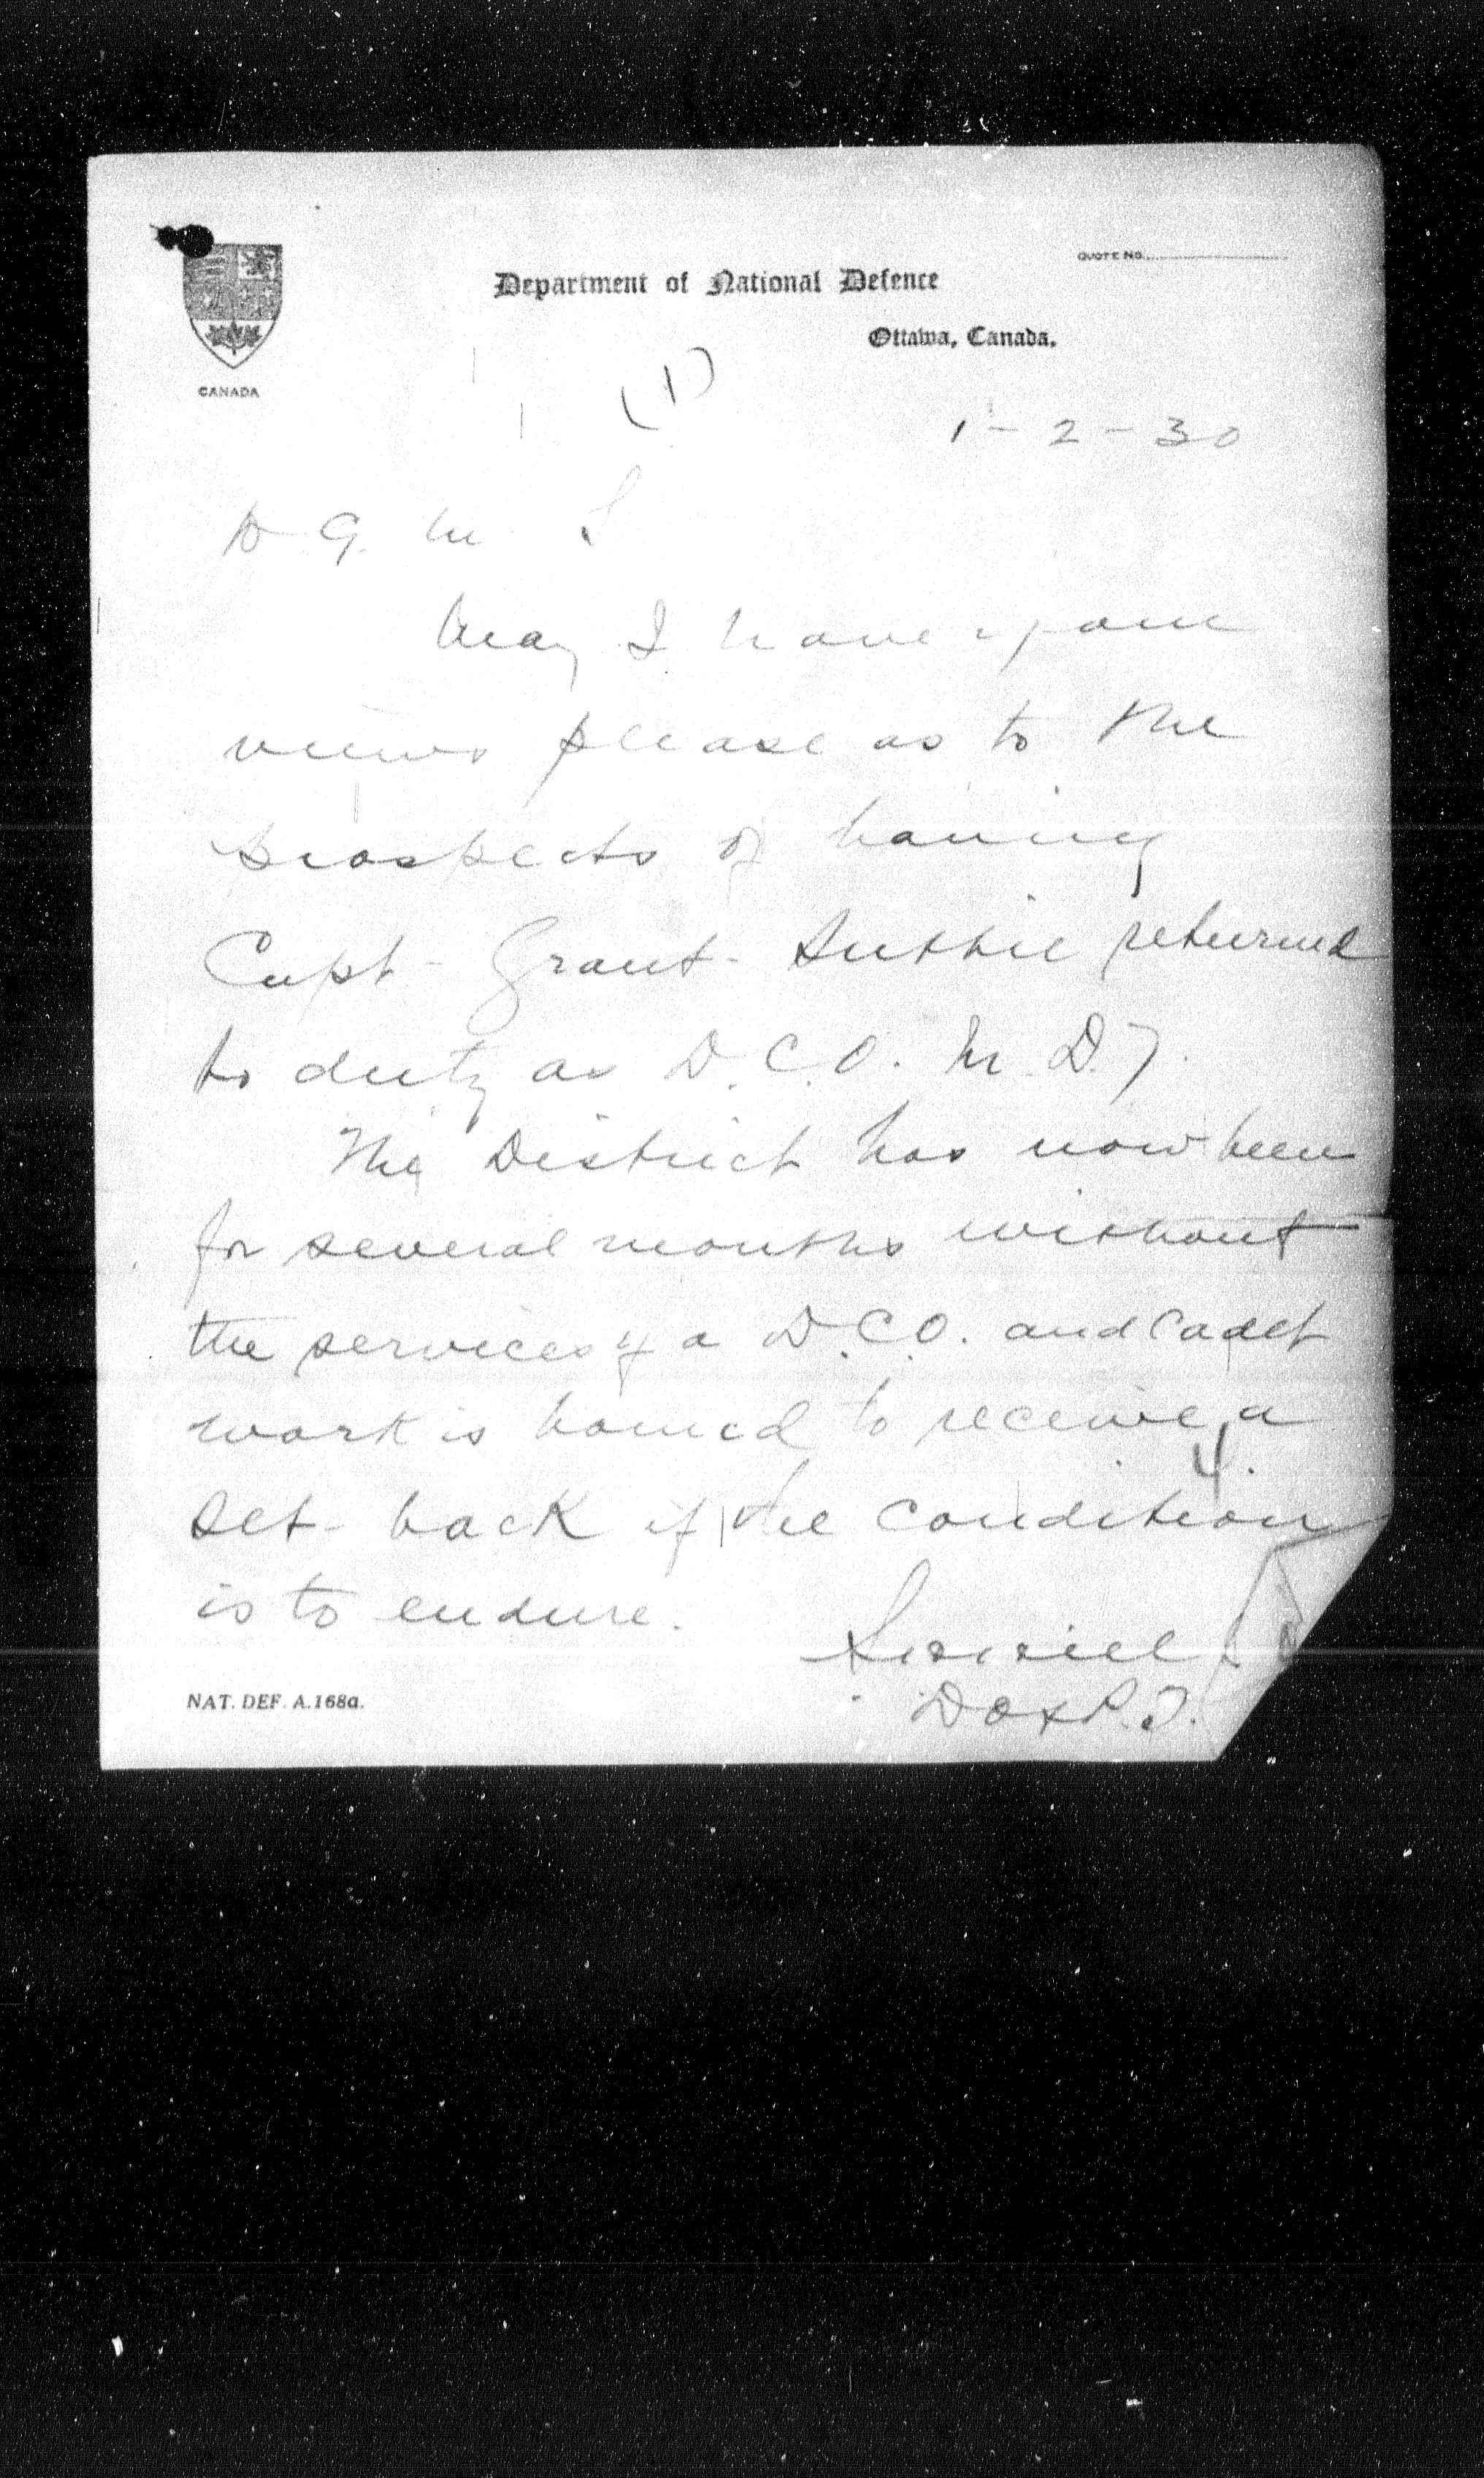 QUOTE NO.
Department of National Defence
Ottawa, Canada.
CANADA
(1)
1-2-30
D. G. M. S
May I have your
views please as to the
prospects of having
Capt- Grant-Suttie returned
to duty as D.C.O. M.D.7.
The District has now been
for several months without
the services of a D.C.O. and Cadet
work is bound to receive a
set-back if the condition
is to endure.
NAT. DEF. A.168a.